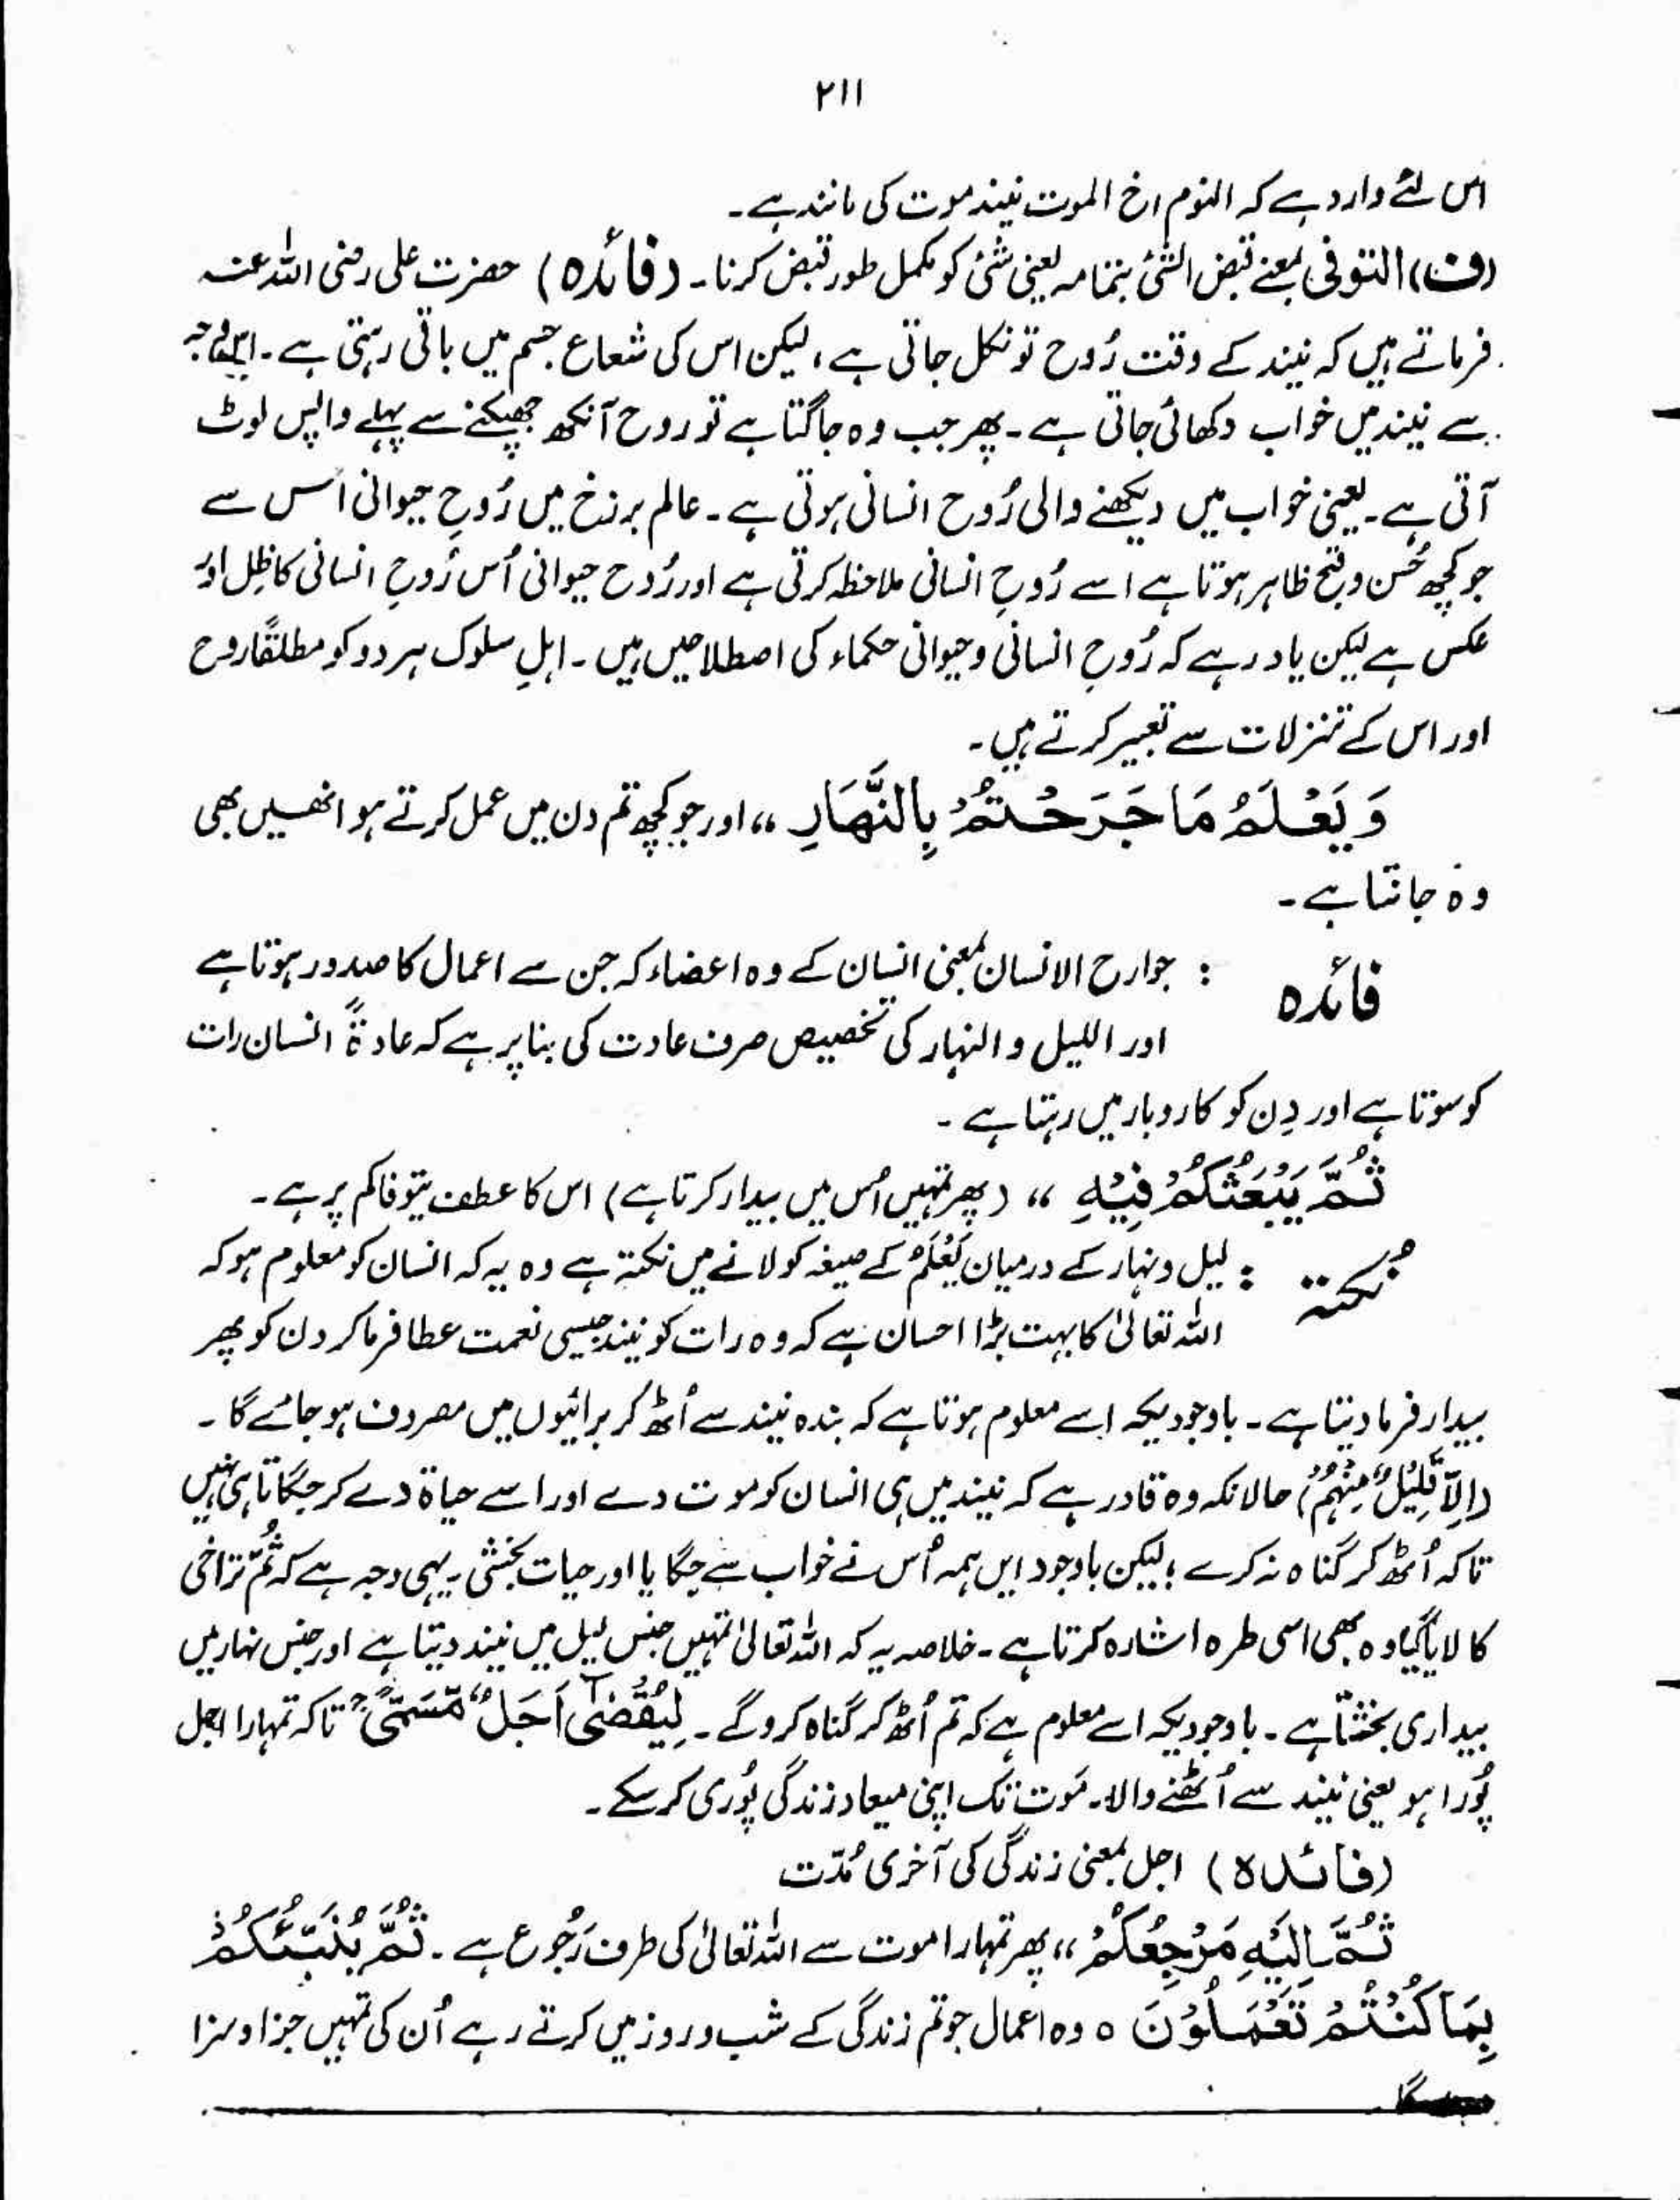 ۲۱۱
اس لئے وارد ہے کہ النوم اخ الموت نیند موت کی مانند ہے۔
(ف) التوفی بمعنے قبض الشئ بتمامہ یعنی شئ کو مکمل طور قبض کرنا۔ (فائدہ) حضرت علی رضی اللہ عنہ
فرماتے ہیں کہ نیند کے وقت رُوح تو نکل جاتی ہے، لیکن اس کی شعاع جسم میں باقی رہتی ہے۔
سے نیند میں خواب دکھائی جاتی ہے۔ پھر جب وہ جاگتا ہے تو روح آنکھ جھپکنے سے پہلے واپس لوٹ
آتی ہے۔ یعنی خواب میں دیکھنے والی رُوح انسانی ہوتی ہے۔ عالم برزخ میں رُوحِ حیوانی اس سے
جو کچھ حُسن و قبح ظاہر ہوتا ہے اسے رُوحِ انسانی ملاحظہ کرتی ہے اور رُوح حیوانی اُس رُوحِ انسانی کا ظِل اور
عکس ہے لیکن یاد رہے کہ رُوحِ انسانی و حیوانی حکماء کی اصطلاحیں ہیں۔ اہلِ سلوک ہر دو کو مطلقًا روح
اور اس کے تنزلات سے تعبیر کرتے ہیں۔
وَ یَعْلَمُ مَا جَرَحْتُمْ بِالنَّهَارِ ،، اور جو کچھ تم دن میں عمل کرتے ہو انھیں بھی
وہ جانتا ہے۔
فائدہ : جوارح الانسان بمعنی انسان کے وہ اعضاء کہ جن سے اعمال کا صدور ہوتا ہے
اور اللیل و النہار کی تخصیص صرف عادت کی بنا پر ہے کہ عادۃً انسان رات
کو سوتا ہے اور دِن کو کاروبار میں رہتا ہے ۔
ثُمَّ یَبْعَثُكُمْ فِیْهِ ،، (پھر تمہیں اُس میں بیدار کرتا ہے) اس کا عطف یتوفاکم پر ہے۔
نُکتہ : لیل و نہار کے درمیان یَعْلَمُ کے صیغہ کو لانے میں نکتہ ہے وہ یہ کہ انسان کو معلوم ہو کہ
اللہ تعالیٰ کا بہت بڑا احسان ہے کہ وہ رات کو نیند جیسی نعمت عطا فرما کر دن کو پھر
بیدار فرما دیتا ہے۔ باوجودیکہ اسے معلوم ہوتا ہے کہ بندہ نیند سے اُٹھ کر برائیوں میں مصروف ہو جائے گا۔
(اِلَّا قَلِیْلٌ مِّنْهُمْ) حالانکہ وہ قادر ہے کہ نیند میں ہی انسان کو موت دے اور اسے حیاۃ دے کر جگاتا ہی نہیں
تاکہ اُٹھ کر گناہ نہ کرے؛ لیکن باوجود ایں ہمہ اُس نے خواب سے جگایا اور حیات بخشی۔ یہی وجہ ہے کہ ثُمّ تراخی
کا لایا گیا وہ بھی اسی طرہ اشارہ کرتا ہے۔ خلاصہ یہ کہ اللہ تعالیٰ تمہیں جنس لیل میں نیند دیتا ہے اور جنس نہار میں
بیداری بخشتا ہے۔ باوجودیکہ اسے معلوم ہے کہ تم اُٹھ کر گناہ کرو گے۔ لِیُقْضٰۤی اَجَلٌ مُّسَمًّی ۚ تاکہ تمہارا اجل
پُورا ہو یعنی نیند سے اُٹھنے والا۔ مَوت تک اپنی میعاد زندگی پُوری کر سکے۔
(فائدہ) اجل بمعنی زندگی کی آخری مُدّت
ثُمَّ اِلَیْهِ مَرْجِعُكُمْ ،، پھر تمہارا موت سے اللہ تعالیٰ کی طرف رَجُوع ہے۔ ثُمَّ یُنَبِّئُكُمْ
بِمَا كُنْتُمْ تَعْمَلُوْنَ ہ وہ اعمال جو تم زندگی کے شب و روز میں کرتے رہے اُن کی تمہیں جزا و سزا
گا